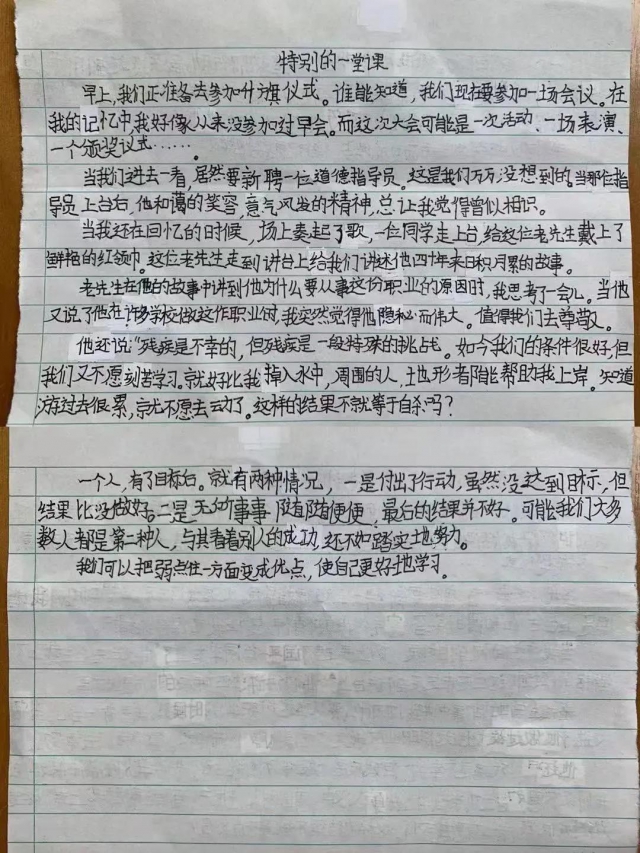 特别的一堂课
早上,我们正准备去参加升旗仪式。谁能知道,我们现在要参加一场会议。在
我的记忆中我好像从来没参加过早会。而这次大会可能是一次活动、一场表演、
一个颁奖议式……。
当我们进去一看,居然要新聘一位道德指导员。这是我们万万没想到的。当那位指
导员上台后,他和蔼的笑容,意气风发的精神,总让我觉得曾似相识。
当我还在回忆的时候,场上奏起了歌,一位同学走上台,给这位老先生戴上了
鲜艳的红领巾。这位老先生走到讲台上给我们讲述他四十年来日积月累的故事。
老先生在他的故事中讲到他为什么要从事这份职业的原因时,我思考了一会儿。当他
又说了他在许多学校做这作职业时,我突然觉得他隐秘而伟大。值得我们去尊敬。
他还说“残疾是不幸的,但残疾是一段特殊的挑战。如今我们的条件很好,但
我们又不愿刻苦学习。就好比我掉入水中,周围的人,地形都能帮助我上岸。知道
游过去很累,就不愿去动了。这样的结果不就等于自杀吗?
一个人,有了目标后。就有两种情况,一是付出了行动,虽然没达到目标,但
结果比没做好。二是无所事事,随随便便,最后的结果并不好。可能我们大多
数人都是第二种人,与其看着别人的成功,还不如踏实地努力。
我们可以把弱点往一方面变成优点,使自己更好地学习。